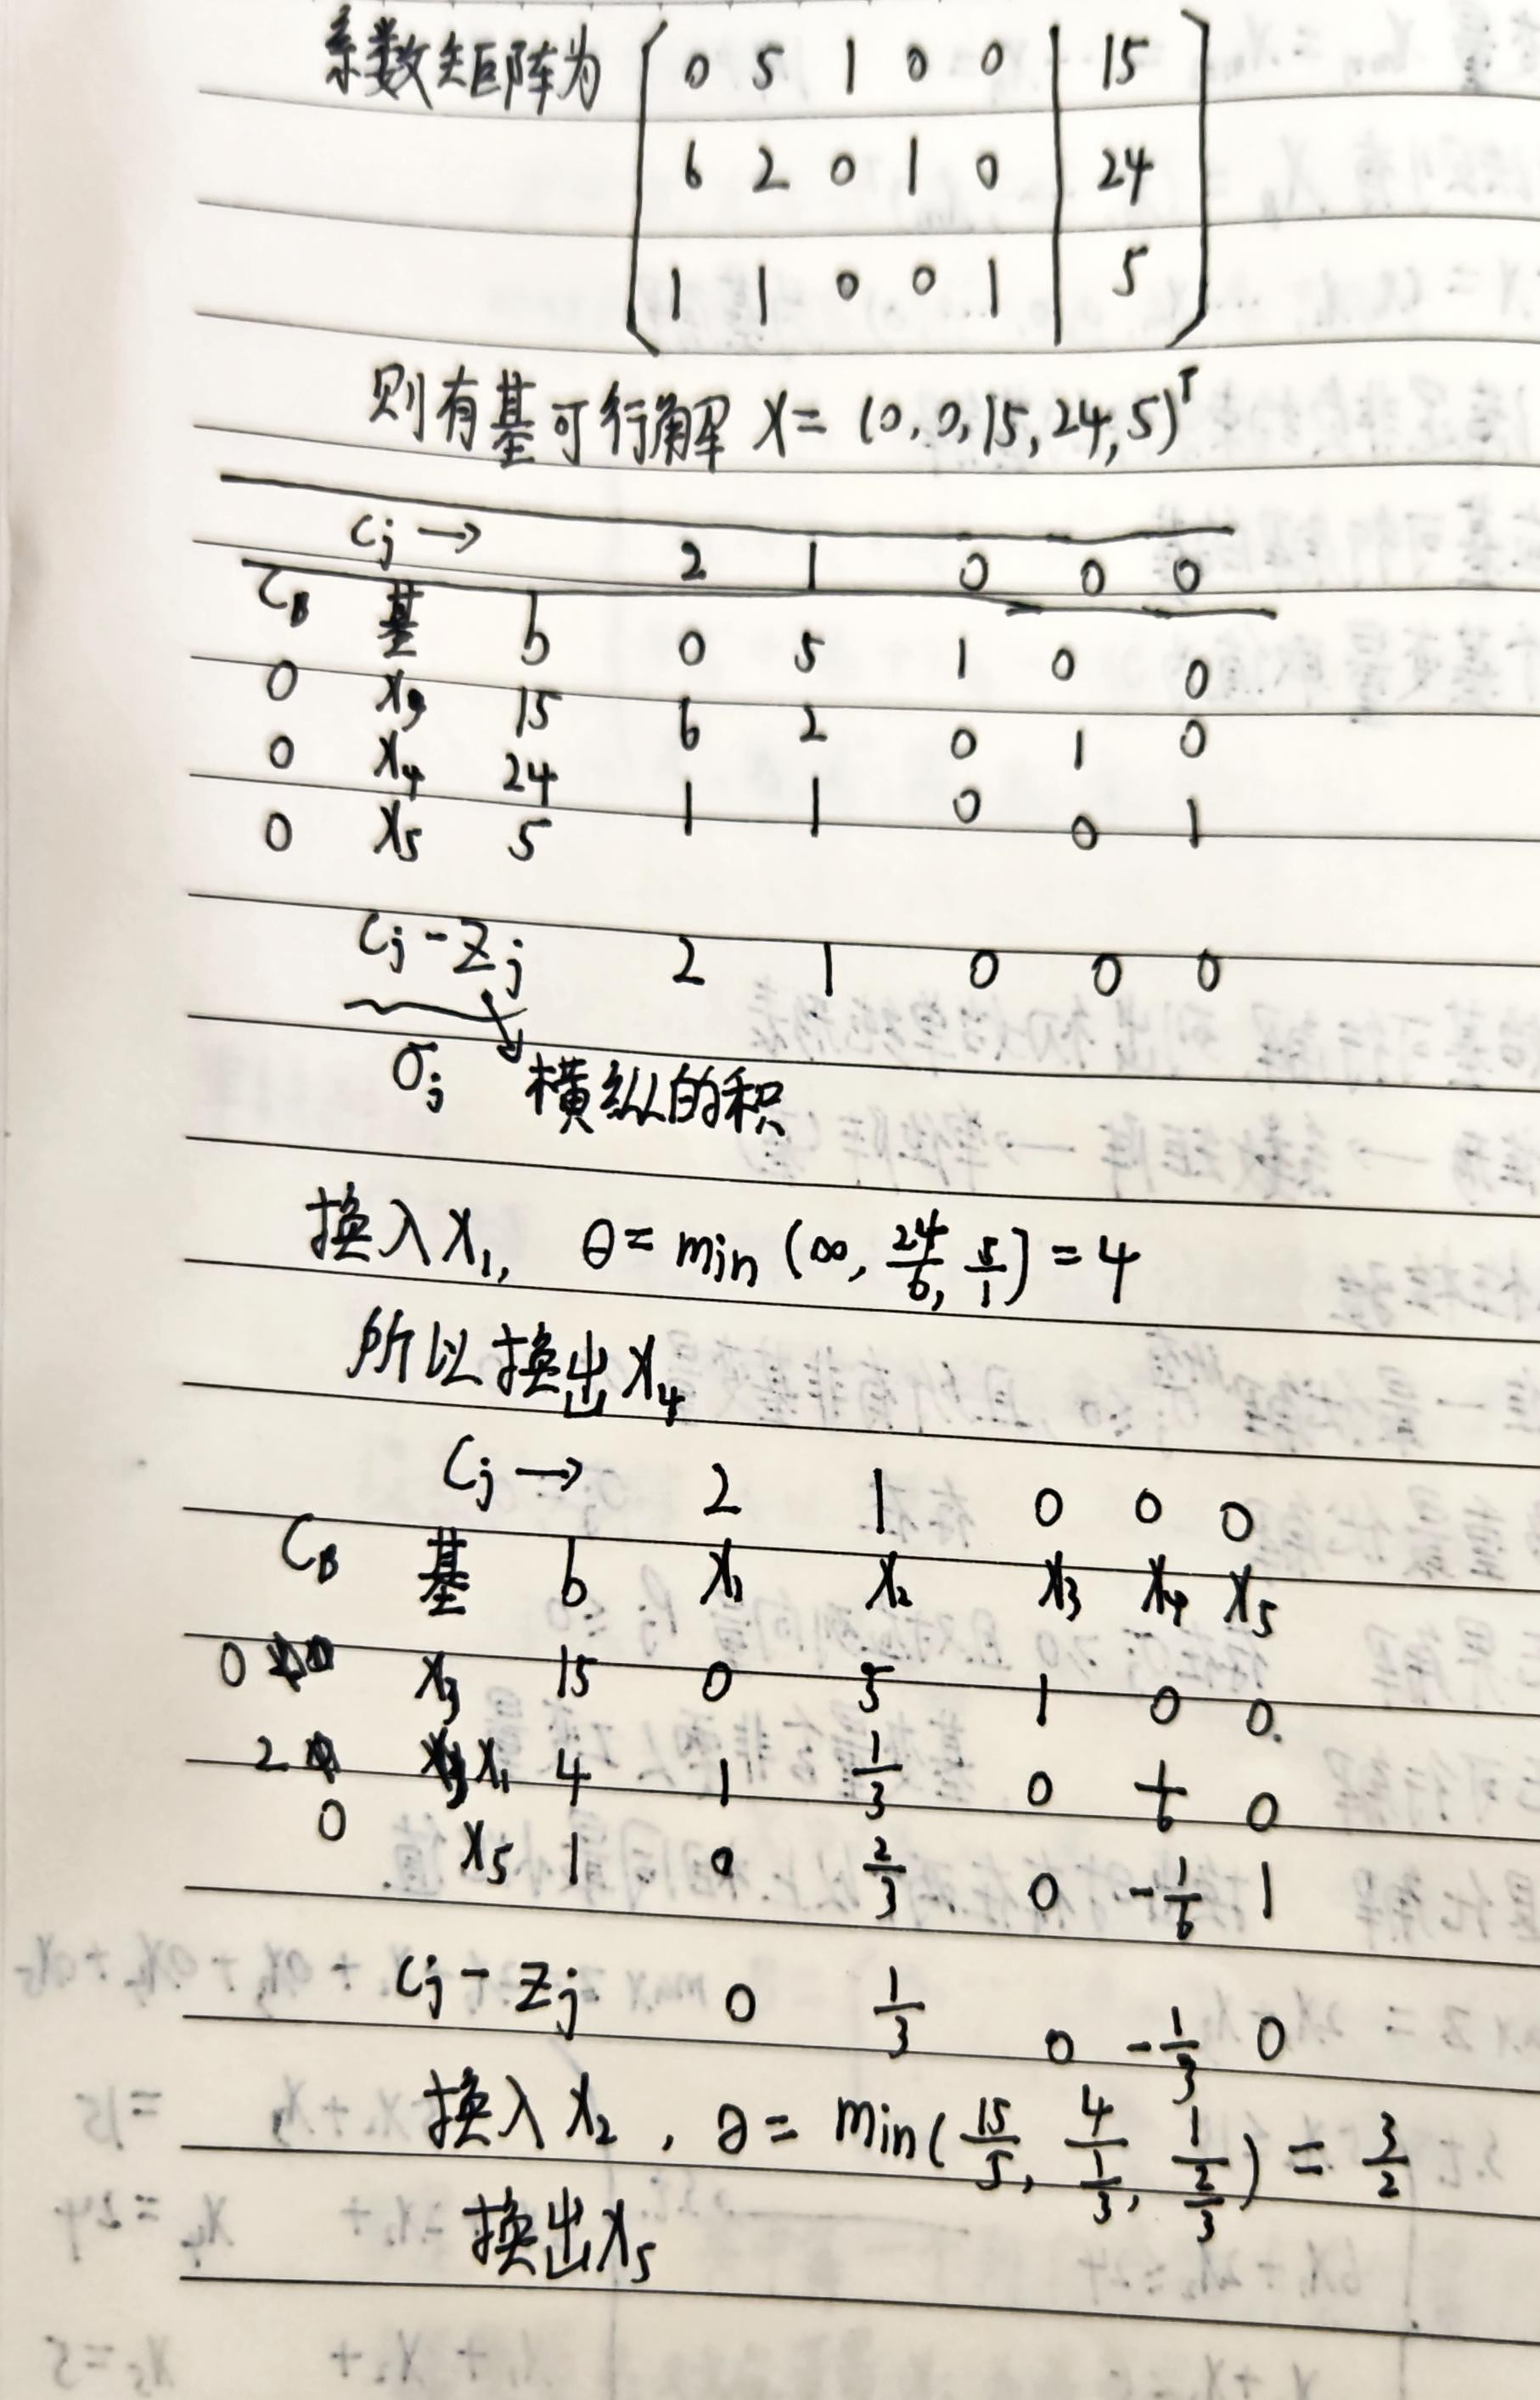 系数矩阵为 0 5 1 0 0 | 15
6 2 0 1 0 | 24
1 1 0 0 1 | 5
则有基可行解 X = (0, 0, 15, 24, 5)ᵀ
Cj → 2 1 0 0 0
CB 基 b 0 5 1 0 0
0 x3 15 6 2 0 1 0
0 x4 24 1 1 0 0 1
0 x5 5
Cj - Zj 2 1 0 0 0
σj 横纵的积
换入 x1, θ = min (∞, 24/6, 5/1) = 4
所以换出 x4
Cj → 2 1 0 0 0
CB 基 b x1 x2 x3 x4 x5
0 x3 15 0 5 1 0 0.
2 x1 4 1 1/3 0 1/6 0
0 x5 1 0 2/3 0 -1/6 1
Cj - Zj 0 1/3 0 -1/3 0
换入 x2, θ = min( 15/5, 4/(1/3), 1/(2/3) ) = 3/2
换出 x5